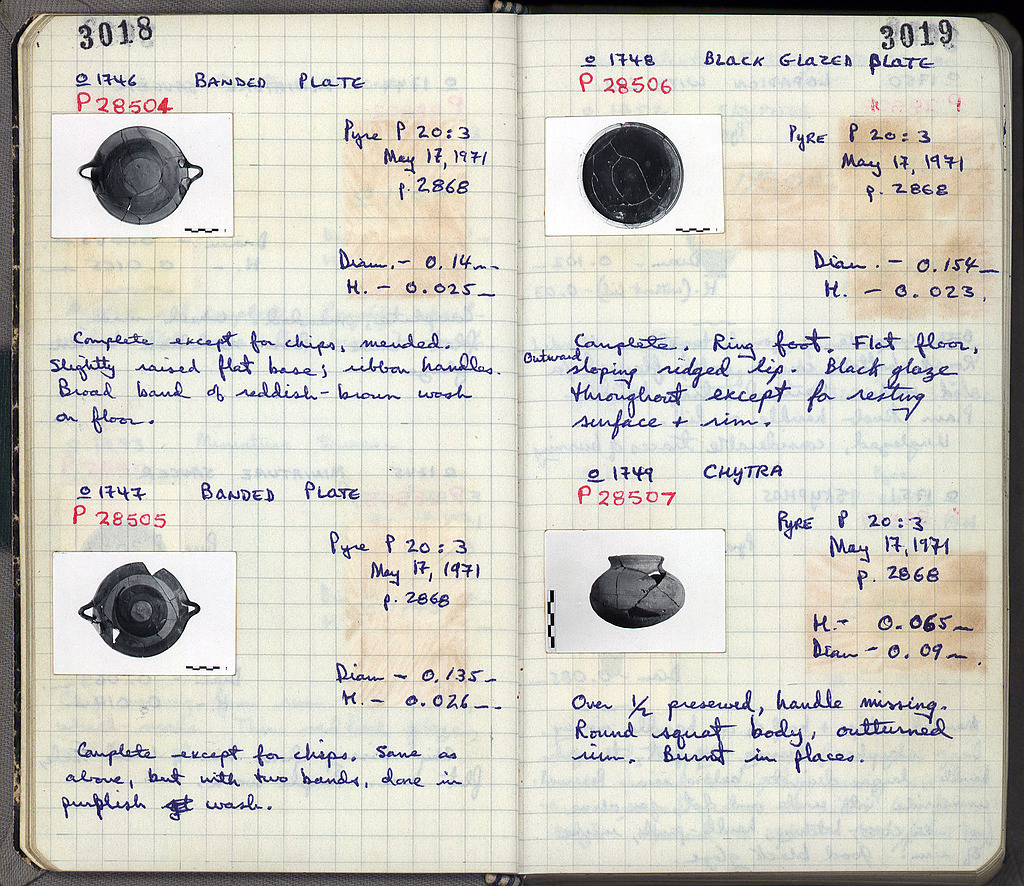 3018
O 1746 BANDED PLATE
P 28504
Pyre P 20:3
May 17, 1971
p. 2868
Diam. - 0.14 m
H. - 0.025
Complete except for chips, mended.
Slightly raised flat base; ribbon handles.
Broad band of reddish-brown wash
on floor.
O 1747 BANDED PLATE
P 28505
Pyre P 20:3
May 17, 1971
p. 2868
Diam - 0.135
H. - 0.026
Complete except for chips. Same as
above, but with two bands, done in
purplish wash.
3019
O 1748 BLACK GLAZED PLATE
P 28506
PYRE P 20:3
May 17, 1971
p. 2868
Diam. - 0.154
H. - 0.023.
Complete. Ring foot. Flat floor,
Outward
sloping ridged lip. Black glaze
throughout except for resting
surface + rim.
O 1749 CHYTRA
P 28507
PYRE P 20:3
May 17, 1971
p. 2868
H. - 0.065
Diam - 0.09
Over 1/2 preserved, handle missing.
Round squat body, outturned
rim. Burnt in places.